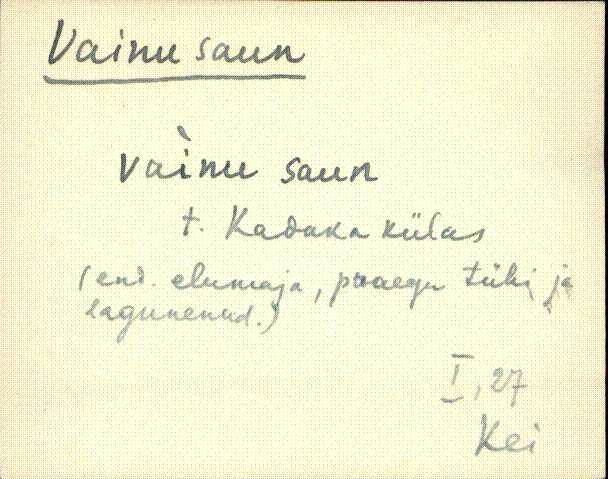 Vainu saun
vàinu saun
t. Kadaka külas
(end. elumaja, praegu tühi ja
lagunenud.)
I, 27
Kei